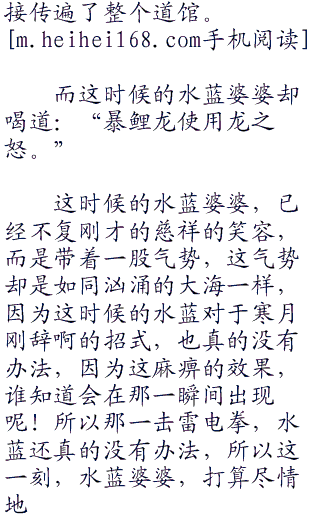 接传遍了整个道馆。
[m.heihei168.com手机阅读]
而这时候的水蓝婆婆却
喝道：“暴鲤龙使用龙之
怒。”
这时候的水蓝婆婆，已
经不复刚才的慈祥的笑容，
而是带着一股气势，这气势
却是如同汹涌的大海一样，
因为这时候的水蓝对于寒月
刚辞啊的招式，也真的没有
办法，因为这麻痹的效果，
谁知道会在那一瞬间出现
呢！所以那一击雷电拳，水
蓝还真的没有办法，所以这
一刻，水蓝婆婆，打算尽情
地